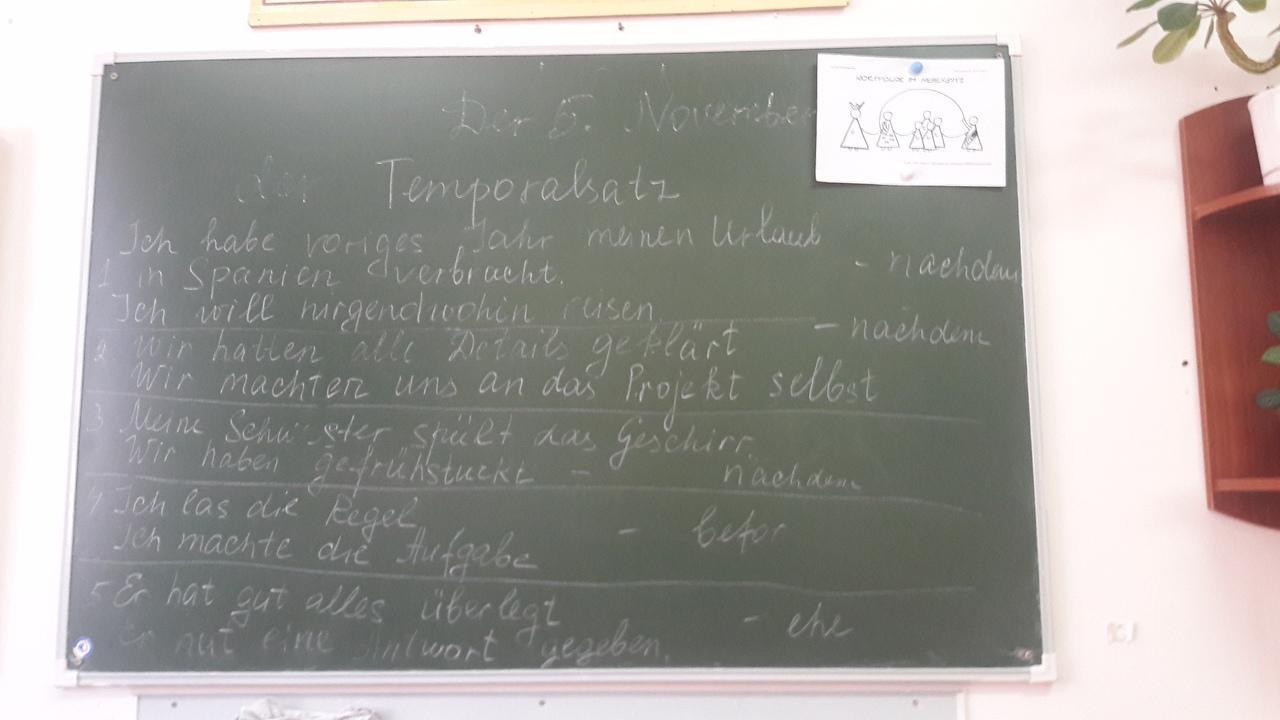 WORTFOLGE IM NEBENSATZ
Der 5. November
der Temporalsatz
Ich habe voriges Jahr meinen Urlaub
1 in Spanien verbracht. - nachdem
Ich will nirgendwohin reisen.
2 Wir hatten alle Details geklärt - nachdem
Wir machten uns an das Projekt selbst
3 Meine Schwester spült das Geschirr.
Wir haben gefrühstuckt - nachdem
4 Ich las die Regel
Ich machte die Aufgabe - befor
5 Er hat gut alles überlegt - ehe
Er hat eine Antwort gegeben.